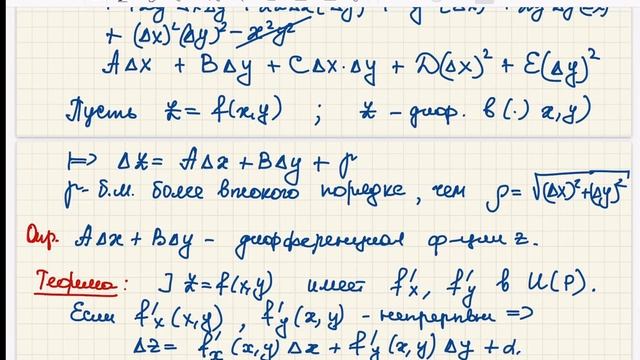 + (Δx)²(Δy)² − x²y²
AΔx + BΔy + CΔx·Δy + D(Δx)² + E(Δy)²
Пусть z = f(x,y) ; z – диф. в (·) x,y)
|=> Δz = AΔx + BΔy + μ
μ – б.м. более высокого порядка, чем ρ = √(Δx)²+(Δy)²
Опр. AΔx + BΔy – дифференциал ф-ции z.
Теорема: ] z=f(x,y) имеет f'x, f'y в U(P).
Если f'x(x,y), f'y(x,y) – непрерывны =>
Δz = f'x(x,y)Δx + f'y(x,y)Δy + α.